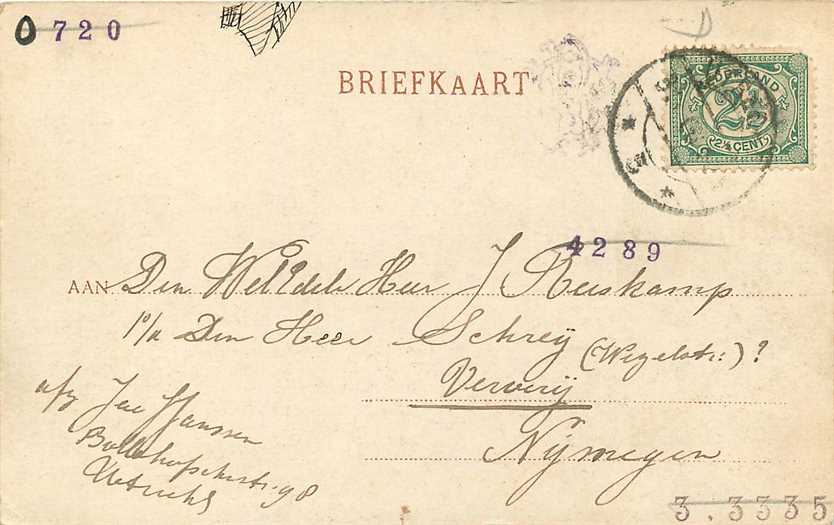 0720
BRIEFKAART
NEDERLAND
2½ CENT
4289
AAN Den WelEdele Heer J Reiskamp
p/a Den Heer Schreij (Wezelstr:)?
Ververij
Nijmegen
afz Jac Janssen
98
Utrecht
3.3335